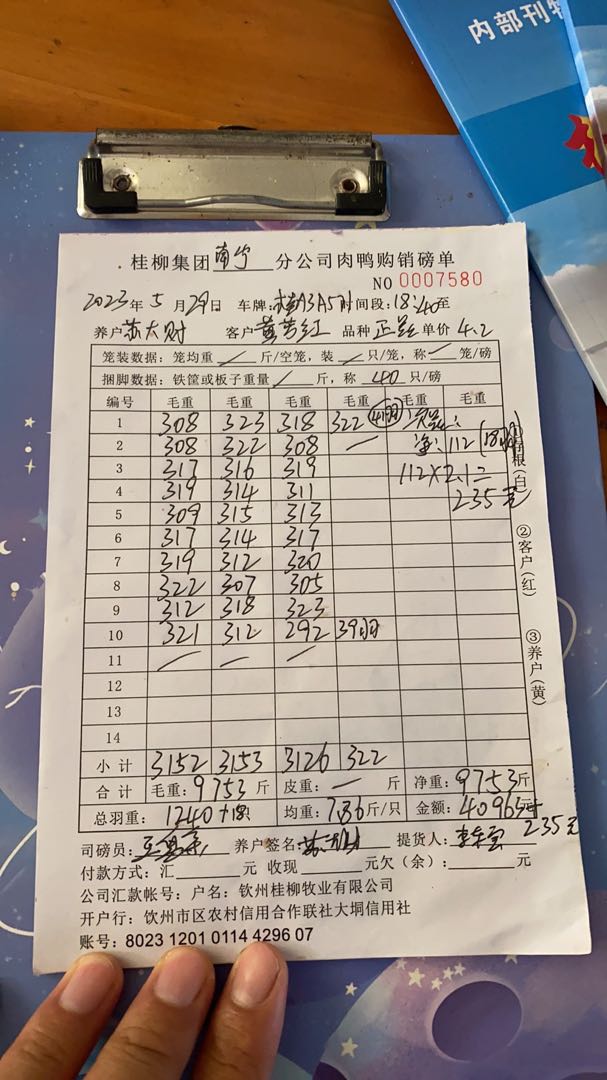 内部刊物
桂柳集团 南宁 分公司肉鸭购销磅单
NO 0007580
2023年5月29日 车牌:桂A3A5 时间段:18:40至
养户 苏大财 客户 黄芳红 品种 正品 单价 4.2
笼装数据:笼均重 / 斤/空笼,装 / 只/笼,称 / 笼/磅
捆脚数据:铁筐或板子重量 / 斤,称 40 只/磅
编号 毛重 毛重 毛重 毛重 毛重 毛重
1 308 323 318 322 (41羽) 次品:
2 308 322 308 / 净:112 (18羽)
3 317 316 319 112×2.1=
4 319 314 311 235元
5 309 315 313
6 317 314 317
7 319 312 320
8 322 307 305
9 312 318 323
10 321 312 292 39羽
11 / / /
12
13
14
小计 3152 3153 3126 322
合计 毛重:9753斤 皮重: / 斤 净重:9753斤
总羽重: 1240+18 均重:7.86斤/只 金额:40963元
+235元
司磅员: 养户签名: 提货人:
付款方式:汇 元 收现 元欠(余): 元
公司汇款帐号:户名:钦州桂柳牧业有限公司
开户行:钦州市区农村信用合作联社大垌信用社
账号:8023 1201 0114 4296 07
①存根(白)
②客户(红)
③养户(黄)